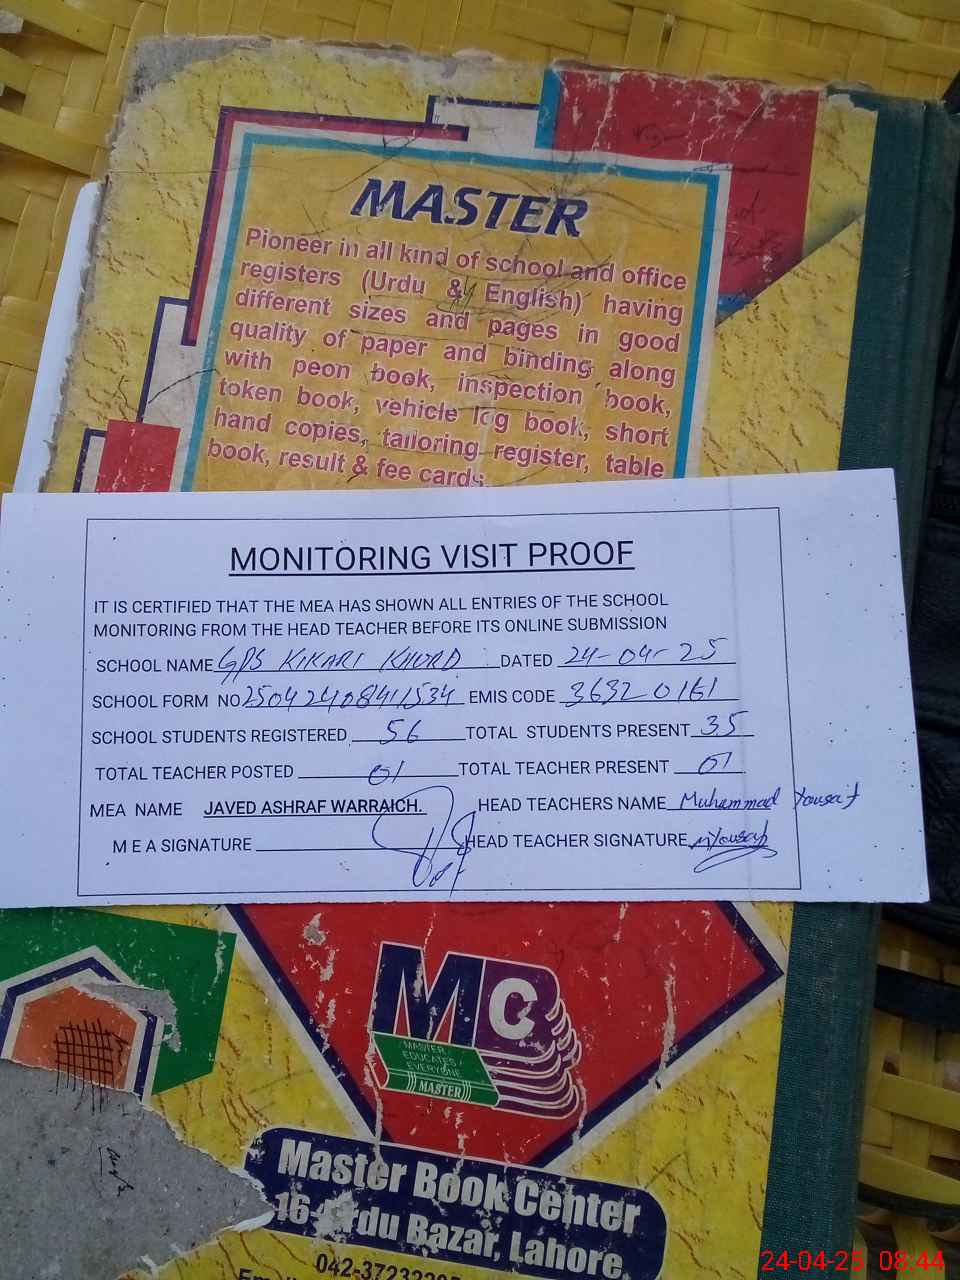 MASTER
Pioneer in all kind of school and office
registers (Urdu & English) having
different sizes and pages in good
quality of paper and binding along
with peon book, inspection book,
token book, vehicle log book, short
hand copies, tailoring register, table
book, result & fee cards
MONITORING VISIT PROOF
IT IS CERTIFIED THAT THE MEA HAS SHOWN ALL ENTRIES OF THE SCHOOL
MONITORING FROM THE HEAD TEACHER BEFORE ITS ONLINE SUBMISSION
SCHOOL NAME GPS KIKARI KHURD DATED 24-04-25
SCHOOL FORM NO 25042408411534 EMIS CODE 36320161
SCHOOL STUDENTS REGISTERED 56 TOTAL STUDENTS PRESENT 35
TOTAL TEACHER POSTED 01 TOTAL TEACHER PRESENT 01
MEA NAME JAVED ASHRAF WARRAICH. HEAD TEACHERS NAME Muhammad Yousaf
M E A SIGNATURE HEAD TEACHER SIGNATURE MYousaf
MC
MASTER
EDUCATES
EVERYONE
MASTER
Master Book Center
16-Urdu Bazar, Lahore
24-04-25 08:44